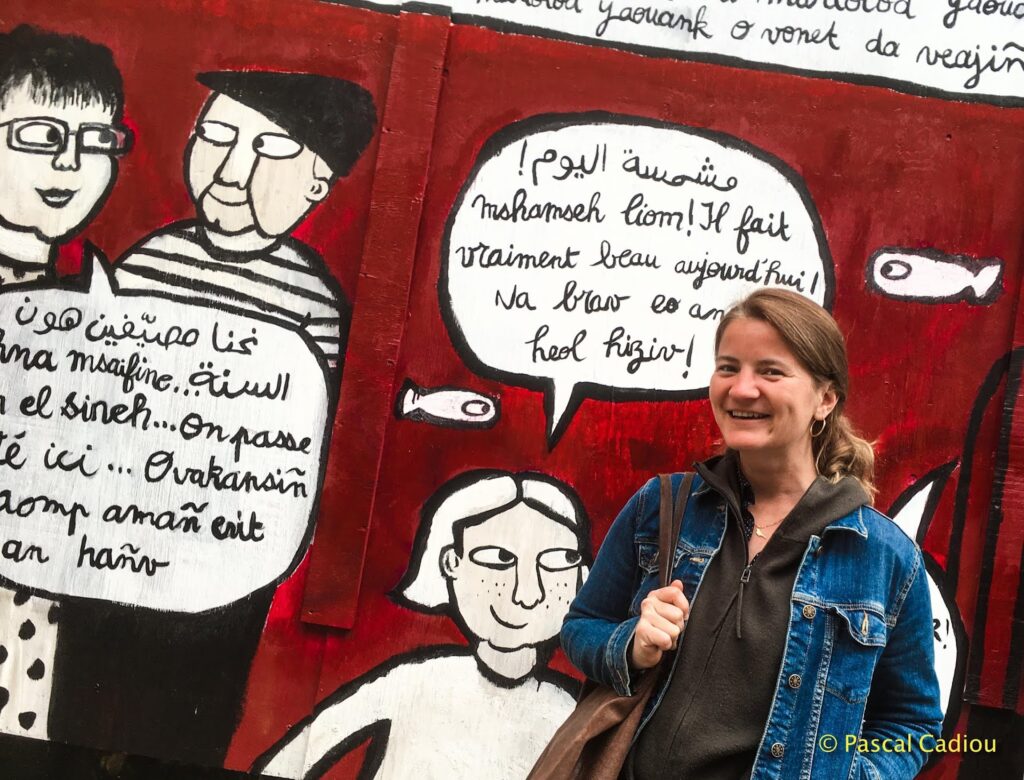 yaouank o vonet da veajiñ
نحنا مصيّفين هون
السنة..
hna msaifine..
n el sineh...On passe
té ici ... Ovakansiñ
aomp amañ evit
an hañv
مشمسة اليوم!
mshamseh liom! Il fait
vraiment beau aujourd'hui!
Na brav eo an
heol hiziv!
© Pascal Cadiou